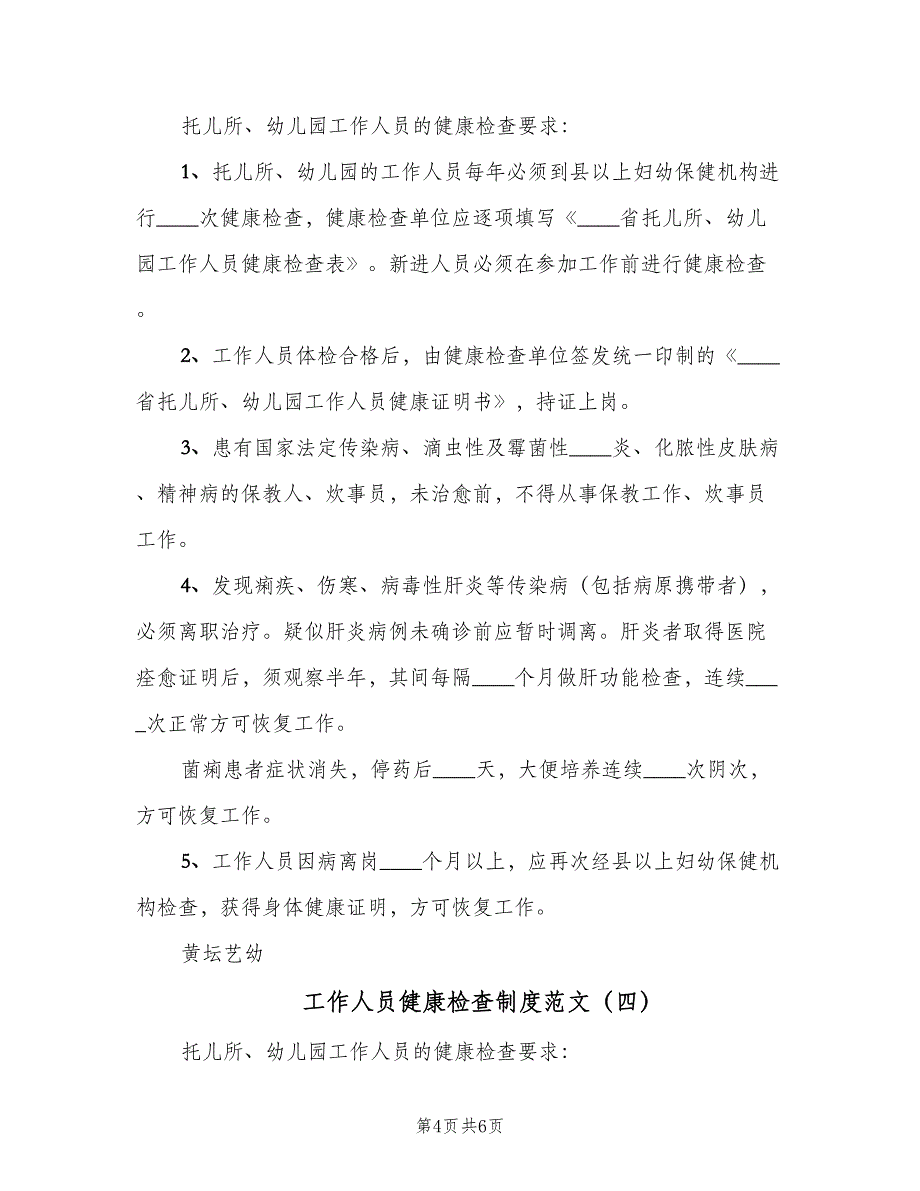 托儿所、幼儿园工作人员的健康检查要求：
1、托儿所、幼儿园的工作人员每年必须到县以上妇幼保健机构进
行____次健康检查，健康检查单位应逐项填写《____省托儿所、幼儿
园工作人员健康检查表》。新进人员必须在参加工作前进行健康检查
。
2、工作人员体检合格后，由健康检查单位签发统一印制的《____
省托儿所、幼儿园工作人员健康证明书》，持证上岗。
3、患有国家法定传染病、滴虫性及霉菌性____炎、化脓性皮肤病
、精神病的保教人、炊事员，未治愈前，不得从事保教工作、炊事员
工作。
4、发现痢疾、伤寒、病毒性肝炎等传染病（包括病原携带者），
必须离职治疗。疑似肝炎病例未确诊前应暂时调离。肝炎者取得医院
痊愈证明后，须观察半年，其间每隔____个月做肝功能检查，连续___
_次正常方可恢复工作。
菌痢患者症状消失，停药后____天，大便培养连续____次阴次，
方可恢复工作。
5、工作人员因病离岗____个月以上，应再次经县以上妇幼保健机
构检查，获得身体健康证明，方可恢复工作。
黄坛艺幼
工作人员健康检查制度范文（四）
托儿所、幼儿园工作人员的健康检查要求：
第4页共6页